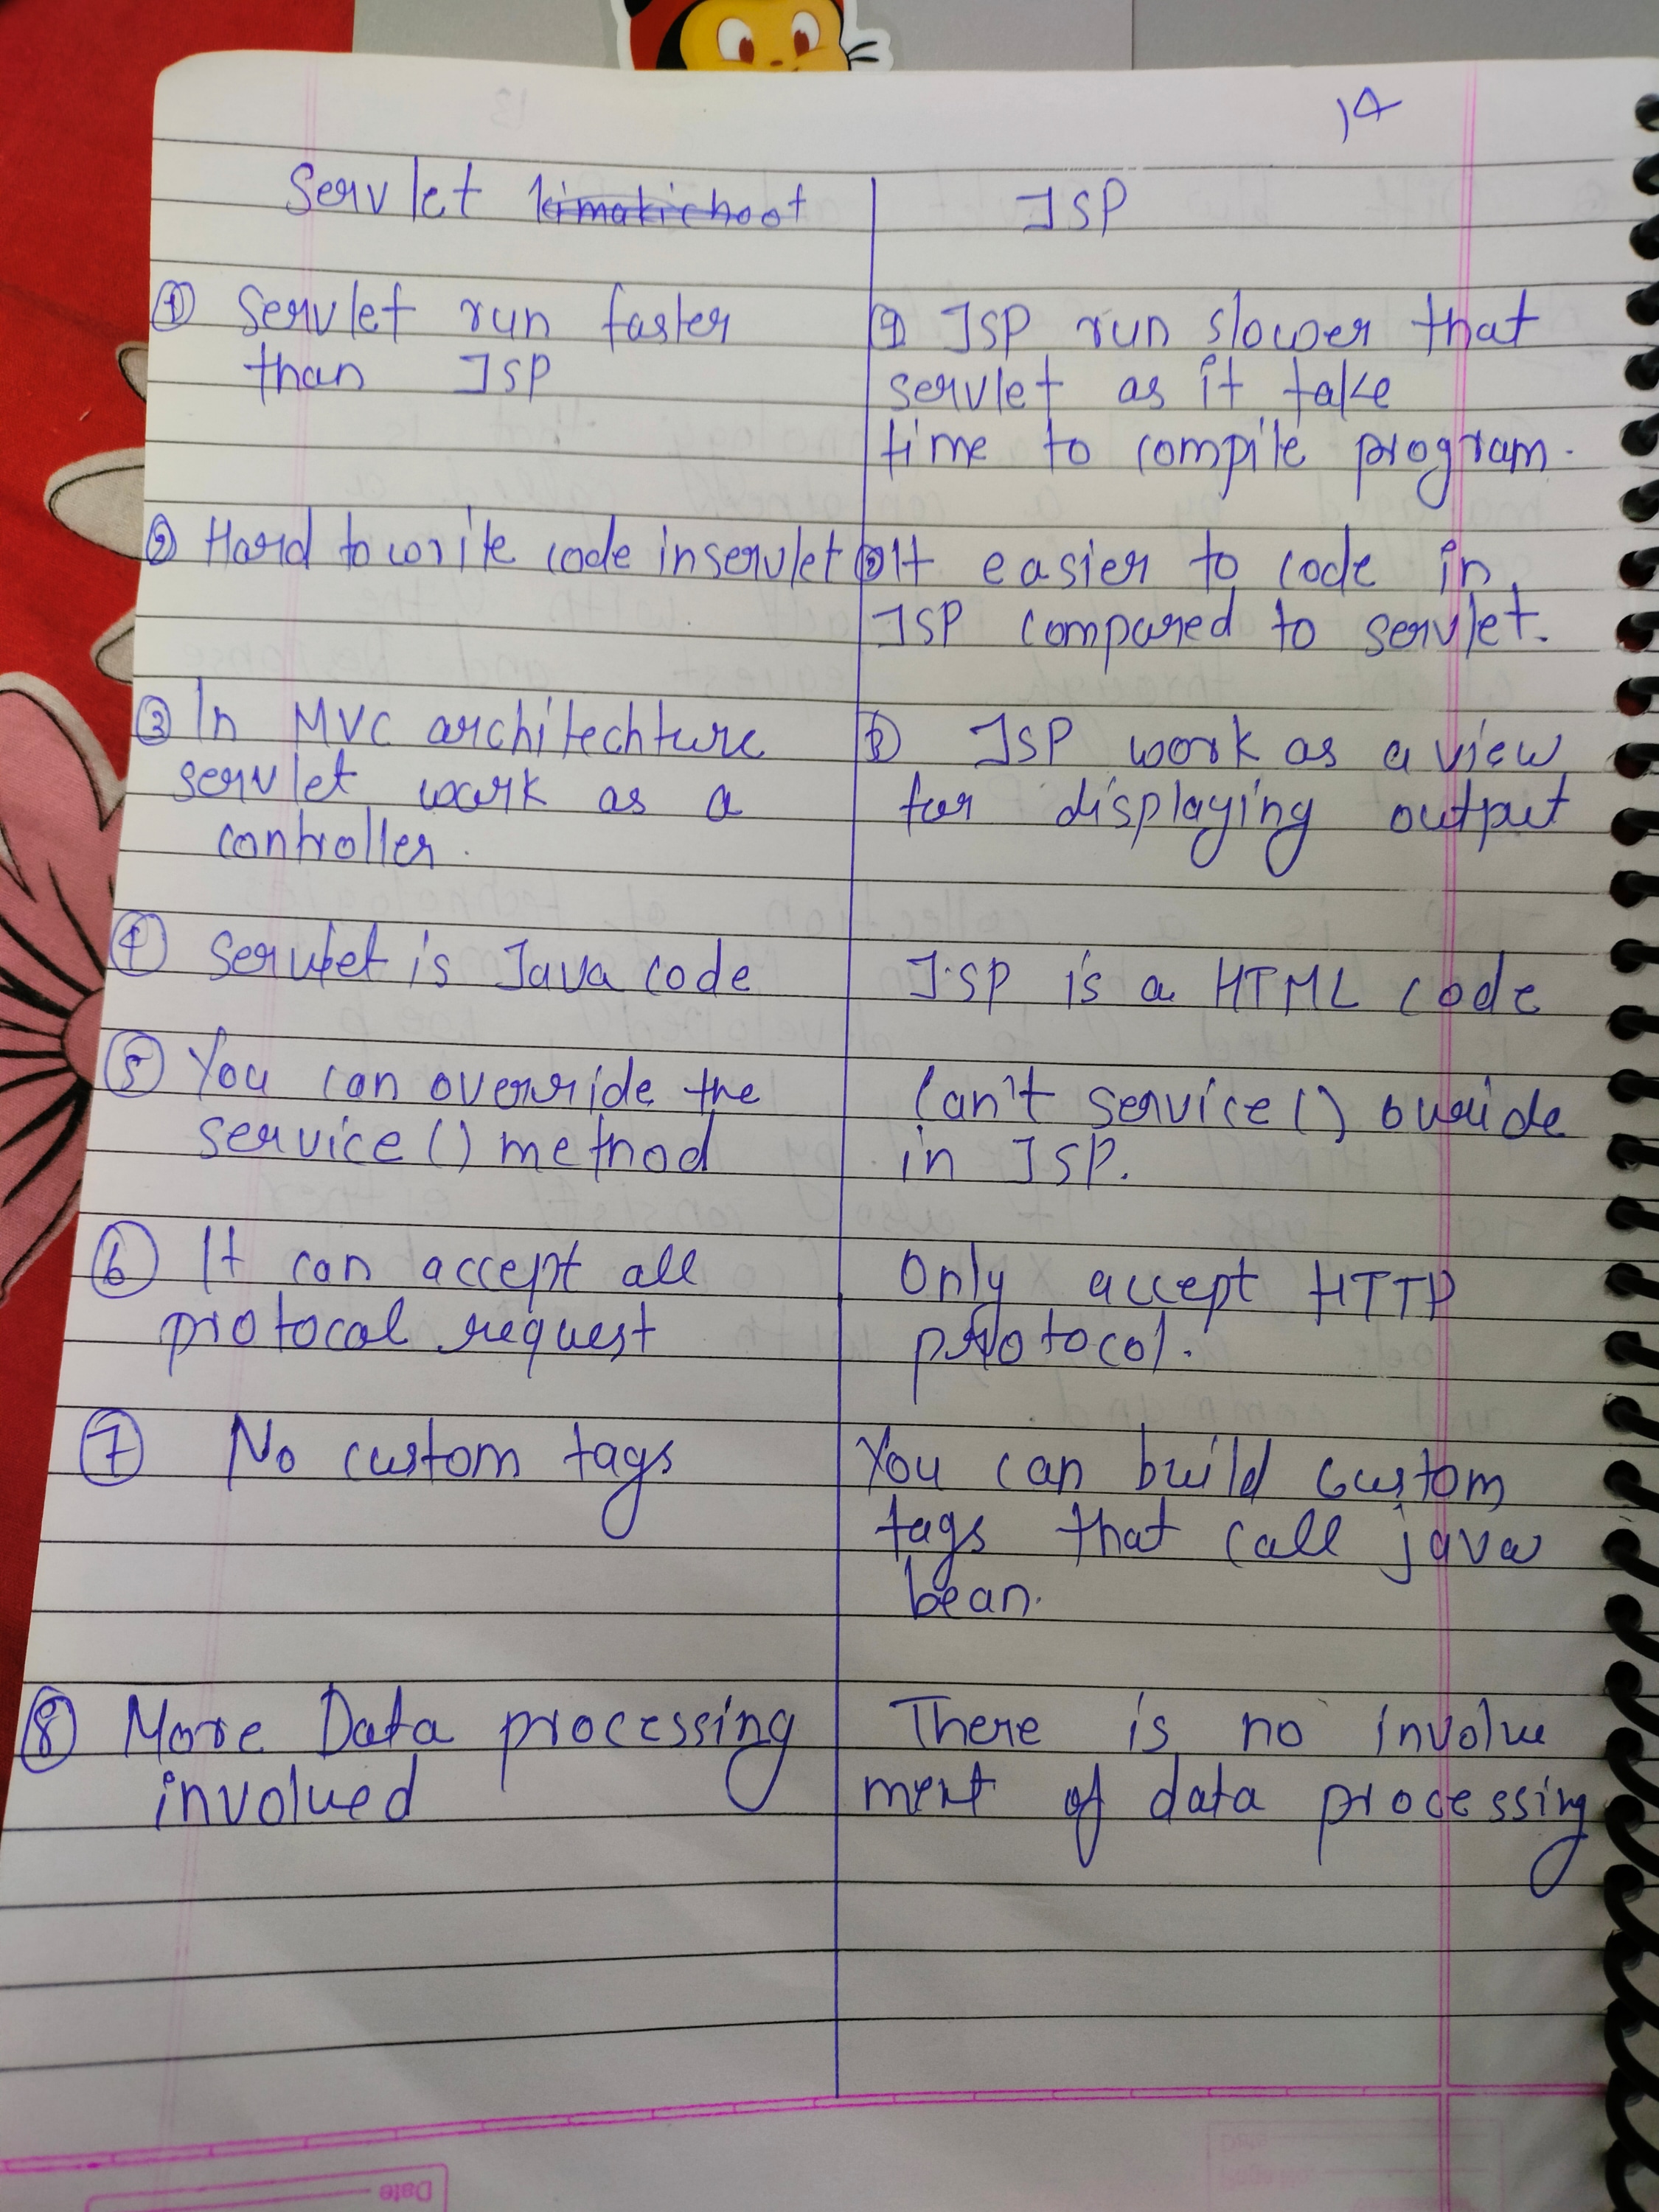 14
Servlet kimakichoot
JSP
① Servlet run faster
than JSP
① JSP run slower that
servlet as it take
time to compile program.
② Hard to write code in servlet
② It easier to code in
JSP compared to servlet.
③ In MVC architechture
servlet work as a
controller.
③ JSP work as a view
for displaying output
④ Servlet is Java code
JSP is a HTML code
⑤ You can override the
service() method
Can't service() ovride
in JSP.
⑥ It can accept all
protocal request
Only accept HTTP
protocol.
⑦ No custom tags
You can build custom
tags that call java
bean.
⑧ More Data processing
involved
There is no involve
ment of data processing
Date